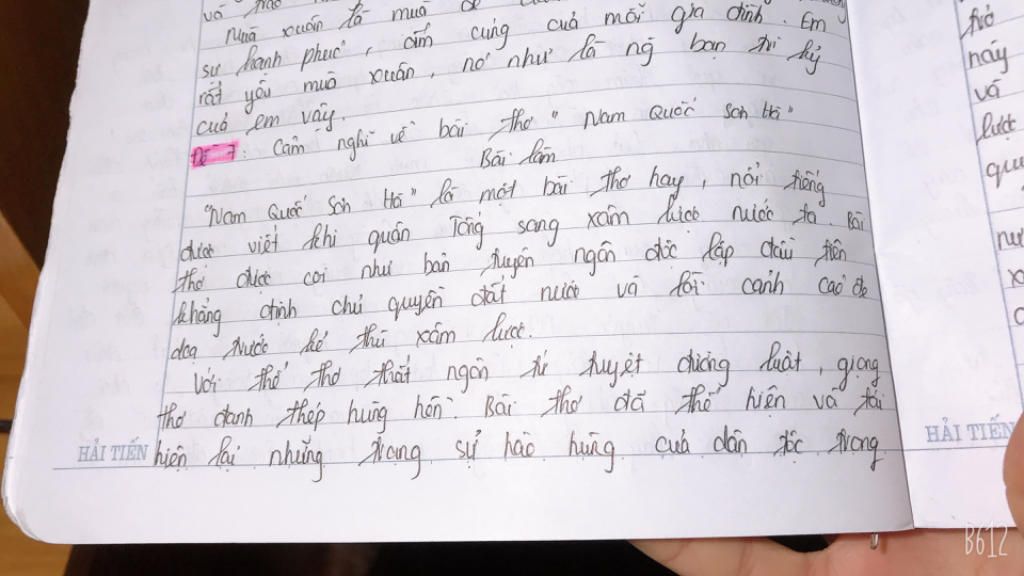 Mùa xuân là mùa
sự hạnh phúc, ấm cúng của mỗi gia đình. Em
rất yêu mùa xuân, nó như là ng bạn tri kỷ
của em vậy.
Đề 7: Cảm nghĩ về bài thơ "Nam Quốc Sơn Hà"
Bài làm
"Nam Quốc Sơn Hà" là một bài thơ hay, nổi tiếng
được viết khi quân Tống sang xâm lược nước ta. Bài
thơ được coi như bản tuyên ngôn độc lập đầu tiên
khẳng định chủ quyền đất nước và lời cảnh cáo đe
doạ trước kẻ thù xâm lược.
Với thể thơ thất ngôn tứ tuyệt đường luật, giọng
thơ đanh thép hùng hồn. Bài thơ đã thể hiện và tái
hiện lại những trang sử hào hùng của dân tộc trong
HẢI TIẾN
trở
này
và
lược
HẢI TIẾN
B612